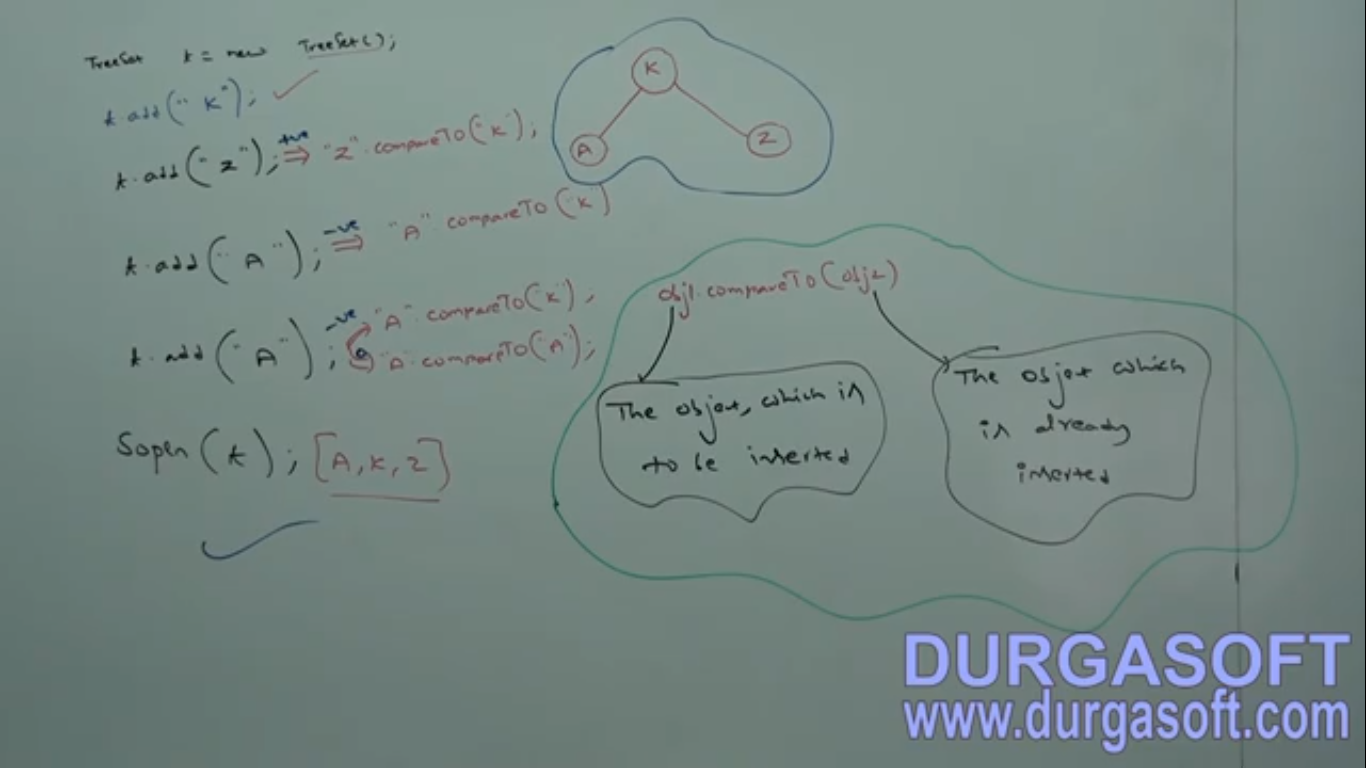 TreeSet t = new TreeSet();
t.add("K");
t.add("Z"); +ve ⇒ "Z".compareTo("K");
t.add("A"); -ve ⇒ "A" compareTo("K")
t.add("A"); -ve "A".compareTo("K");
0 "A".compareTo("A");
Sopln(t); [A, K, Z]
K
A
Z
obj1.compareTo(obj2)
The object, which is
to be inserted
The object which
is already
inserted
DURGASOFT
www.durgasoft.com